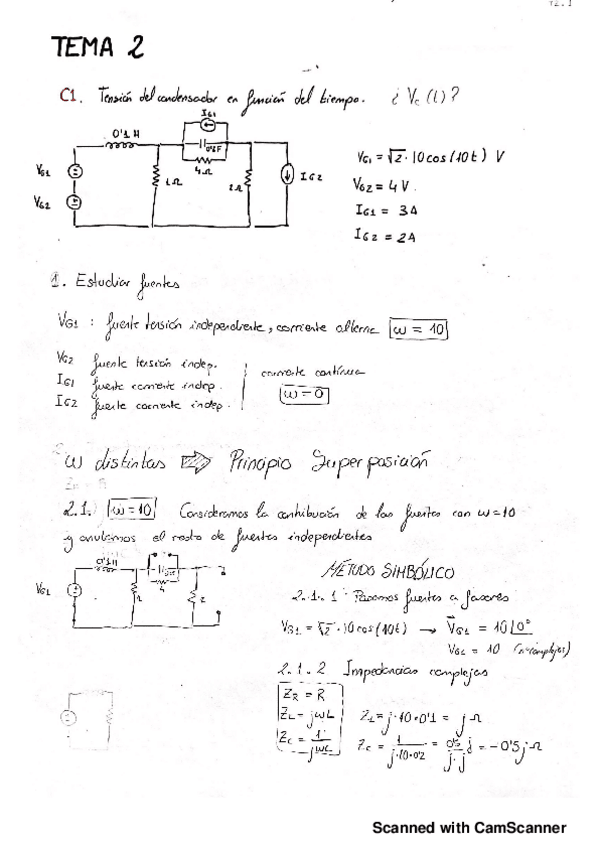 T2.1
TEMA 2
C1. Tensión del condensador en función del tiempo. ¿Vc(t)?
IG1
0'1H
4Ω
VG1
VG2
2Ω
IG2
VG1 = √2·10cos(10t) V
VG2 = 4V.
IG1 = 3A
IG2 = 2A
1. Estudiar fuentes
VG1 : fuente tensión independiente, corriente alterna w = 10
VG2 fuente tensión indep.
IG1 fuente corriente indep.
IG2 fuente corriente indep.
corriente continua
w=0
w distintas ⇒ Principio Superposición
2.1. w=10 Consideramos la contribución de las fuentes con w=10
y anulamos el resto de fuentes independientes
0'1H
VG1
2
4
2
MÉTODO SIMBÓLICO
2.1.1 Pasamos fuentes a fasores
VG1 = √2·10cos(10t) → VG1 = 10|0°
VG1 = 10 (n·complejos)
2.1.2 Impedancias complejas
ZR = R
ZL = jwL
ZL = j·10·0'1 = jΩ
Zc = 1/jwC
Zc = 1/j·10·0'2 = 0'5/j·j j = -0'5jΩ
Scanned with CamScanner